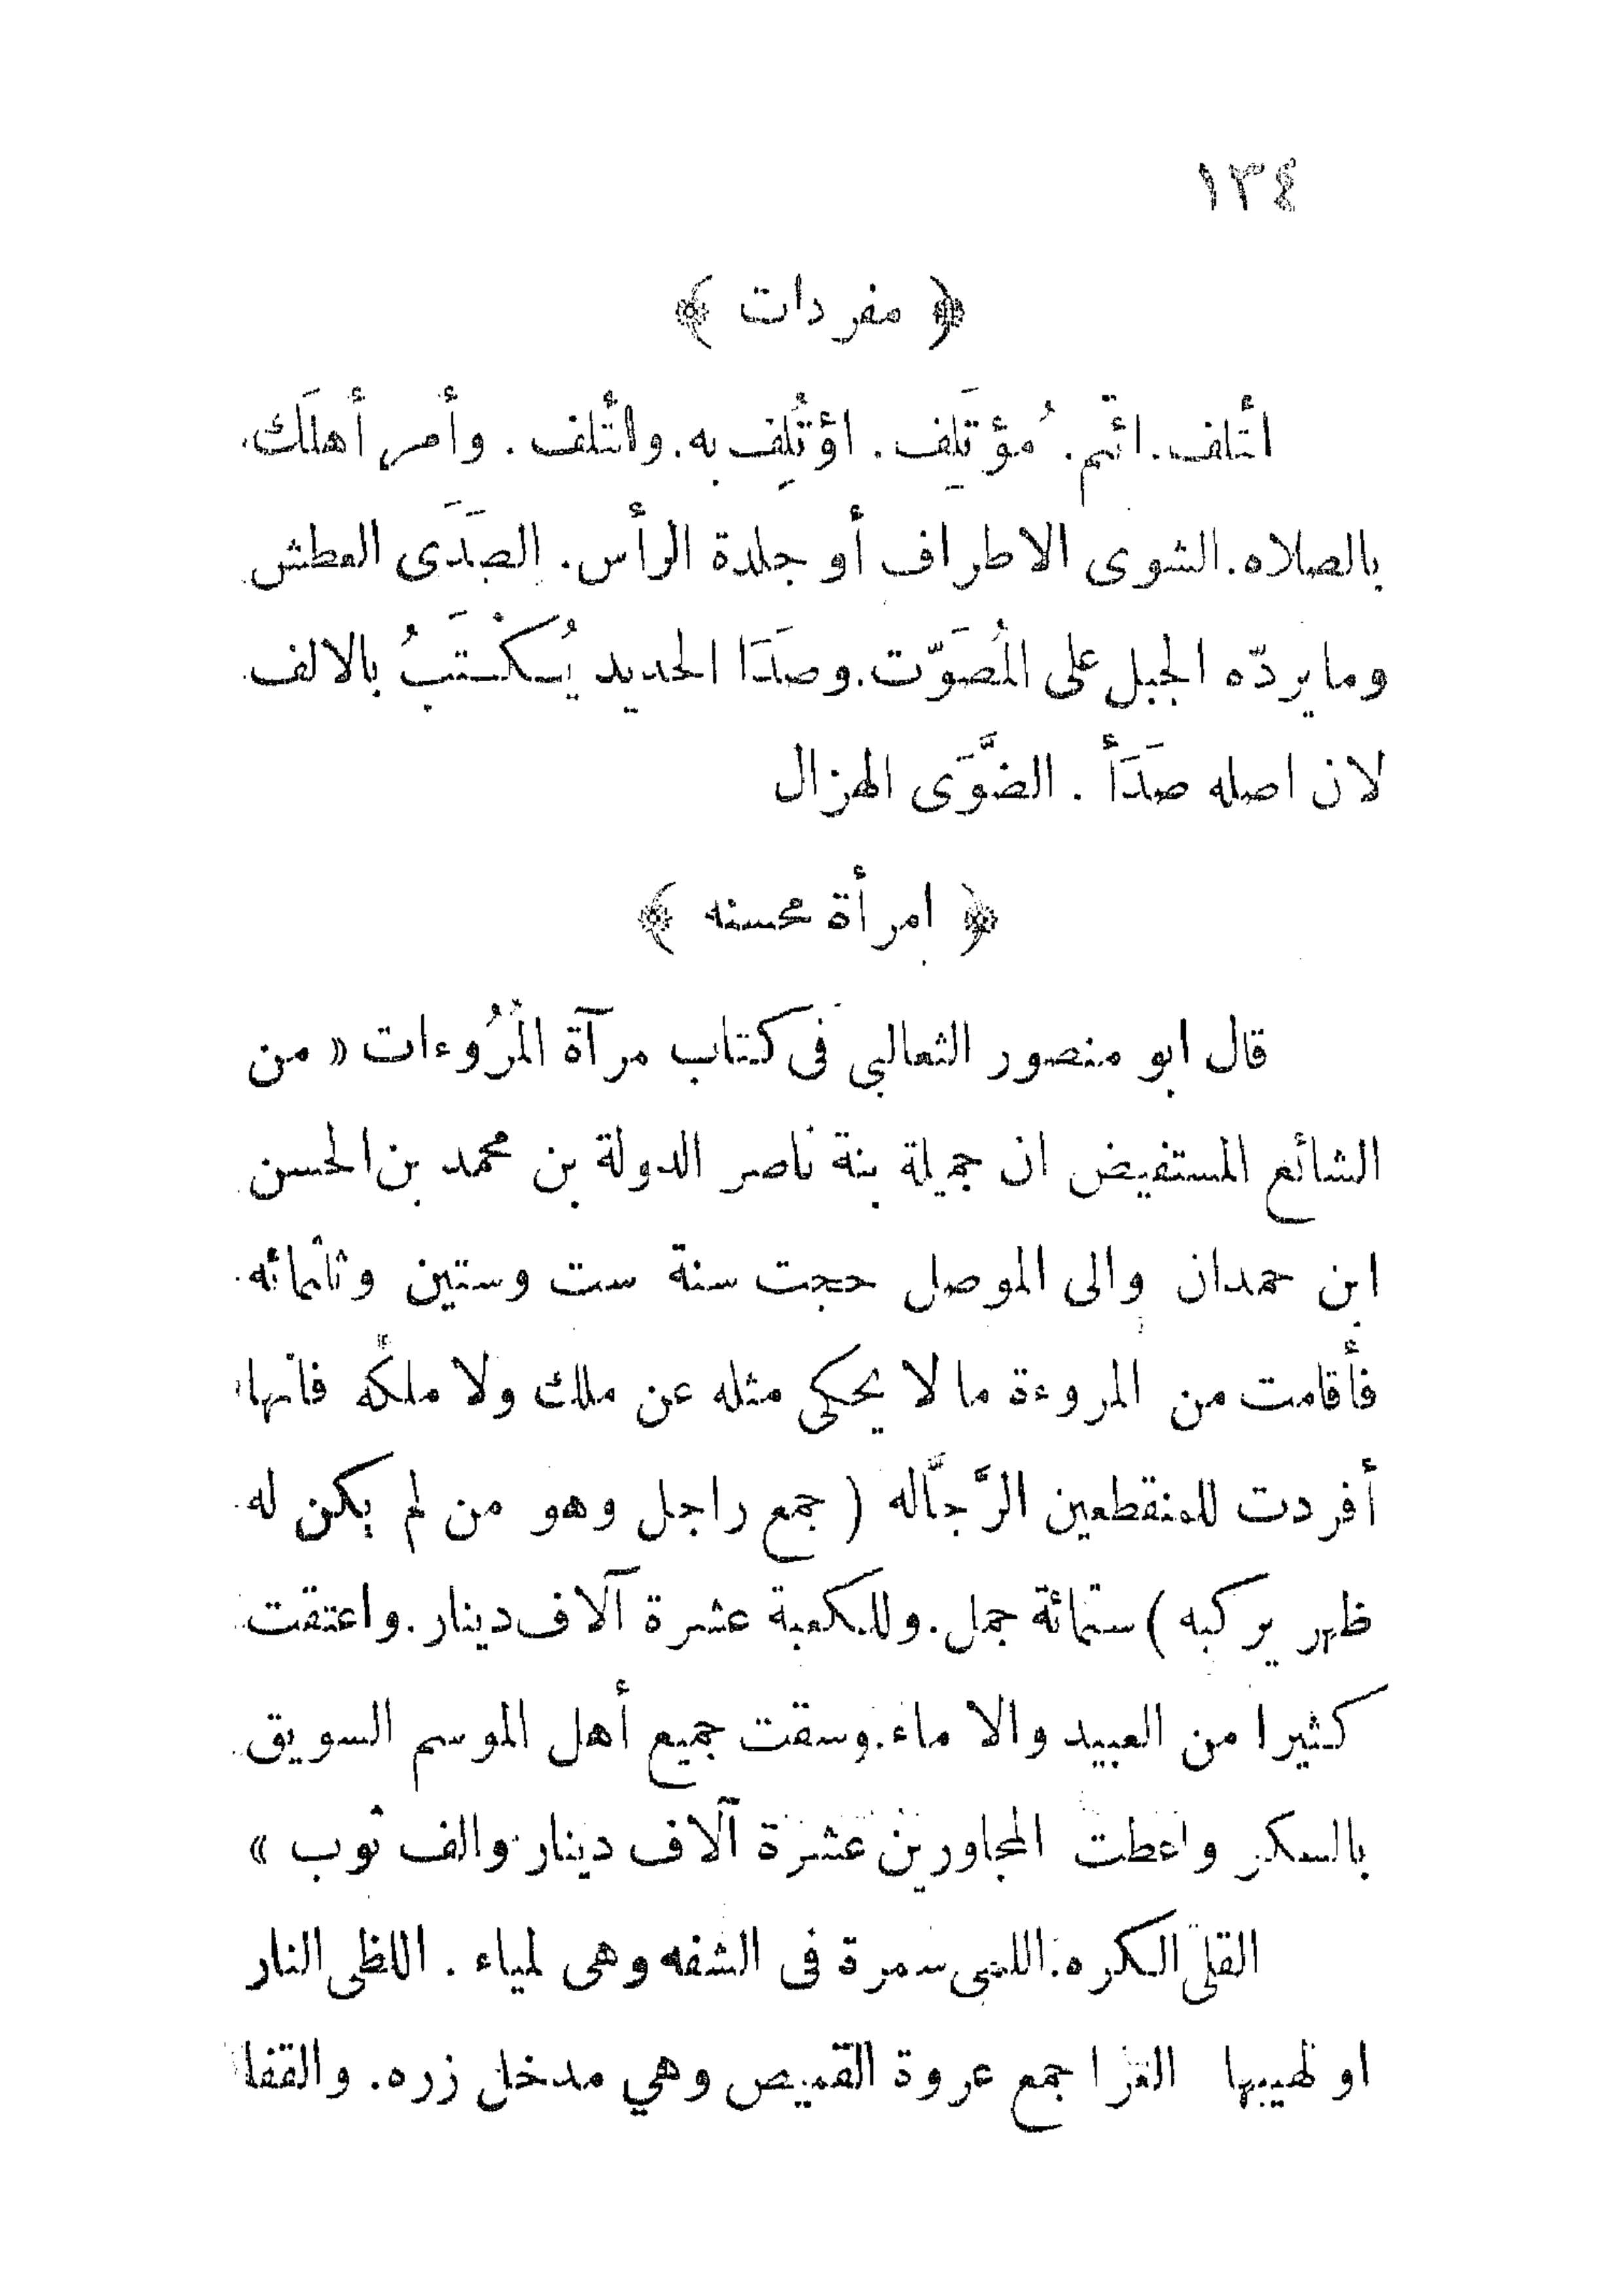 ١٣٤
﴿ مفردات ﴾
اأتلف. ائتم. مُؤتَلِف. اؤتُلِف به. وأتلف. وأمر أهلَك
بالصلاه. الشوى الاطراف أو جلدة الرأس. الصَدَى العطش
وما يردّه الجبل على المُصَوّت. وصَدَا الحديد يُكْتَبُ بالالف
لان اصله صَدَأ . الضَّوَى الهزال
﴿ امرأة محسنه ﴾
قال ابو منصور الثعالبي فى كتاب مرآة المُرُوءات « من
الشائع المستفيض ان جميلة بنة ناصر الدولة بن محمد بن الحسن
ابن حمدان والى الموصل حجت سنة ست وستين وثلثمائه
فأقامت من المروءة ما لا يحكى مثله عن ملك ولا ملكه فانها
أفردت للمنقطعين الرَّجَّاله ( جمع راجل وهو من لم يكن له
ظهر يركبه ) ستمائة جمل. وللكعبة عشرة آلاف دينار. واعتقت
كثيرا من العبيد والاماء. وسقت جميع أهل الموسم السويق
بالسكر واعطت المجاورين عشرة آلاف دينار والف ثوب »
القلى الكره. اللمى سمرة فى الشفه وهى لمياء . اللظى النار
او لهيبها العرا جمع عروة القميص وهي مدخل زره. والقفا